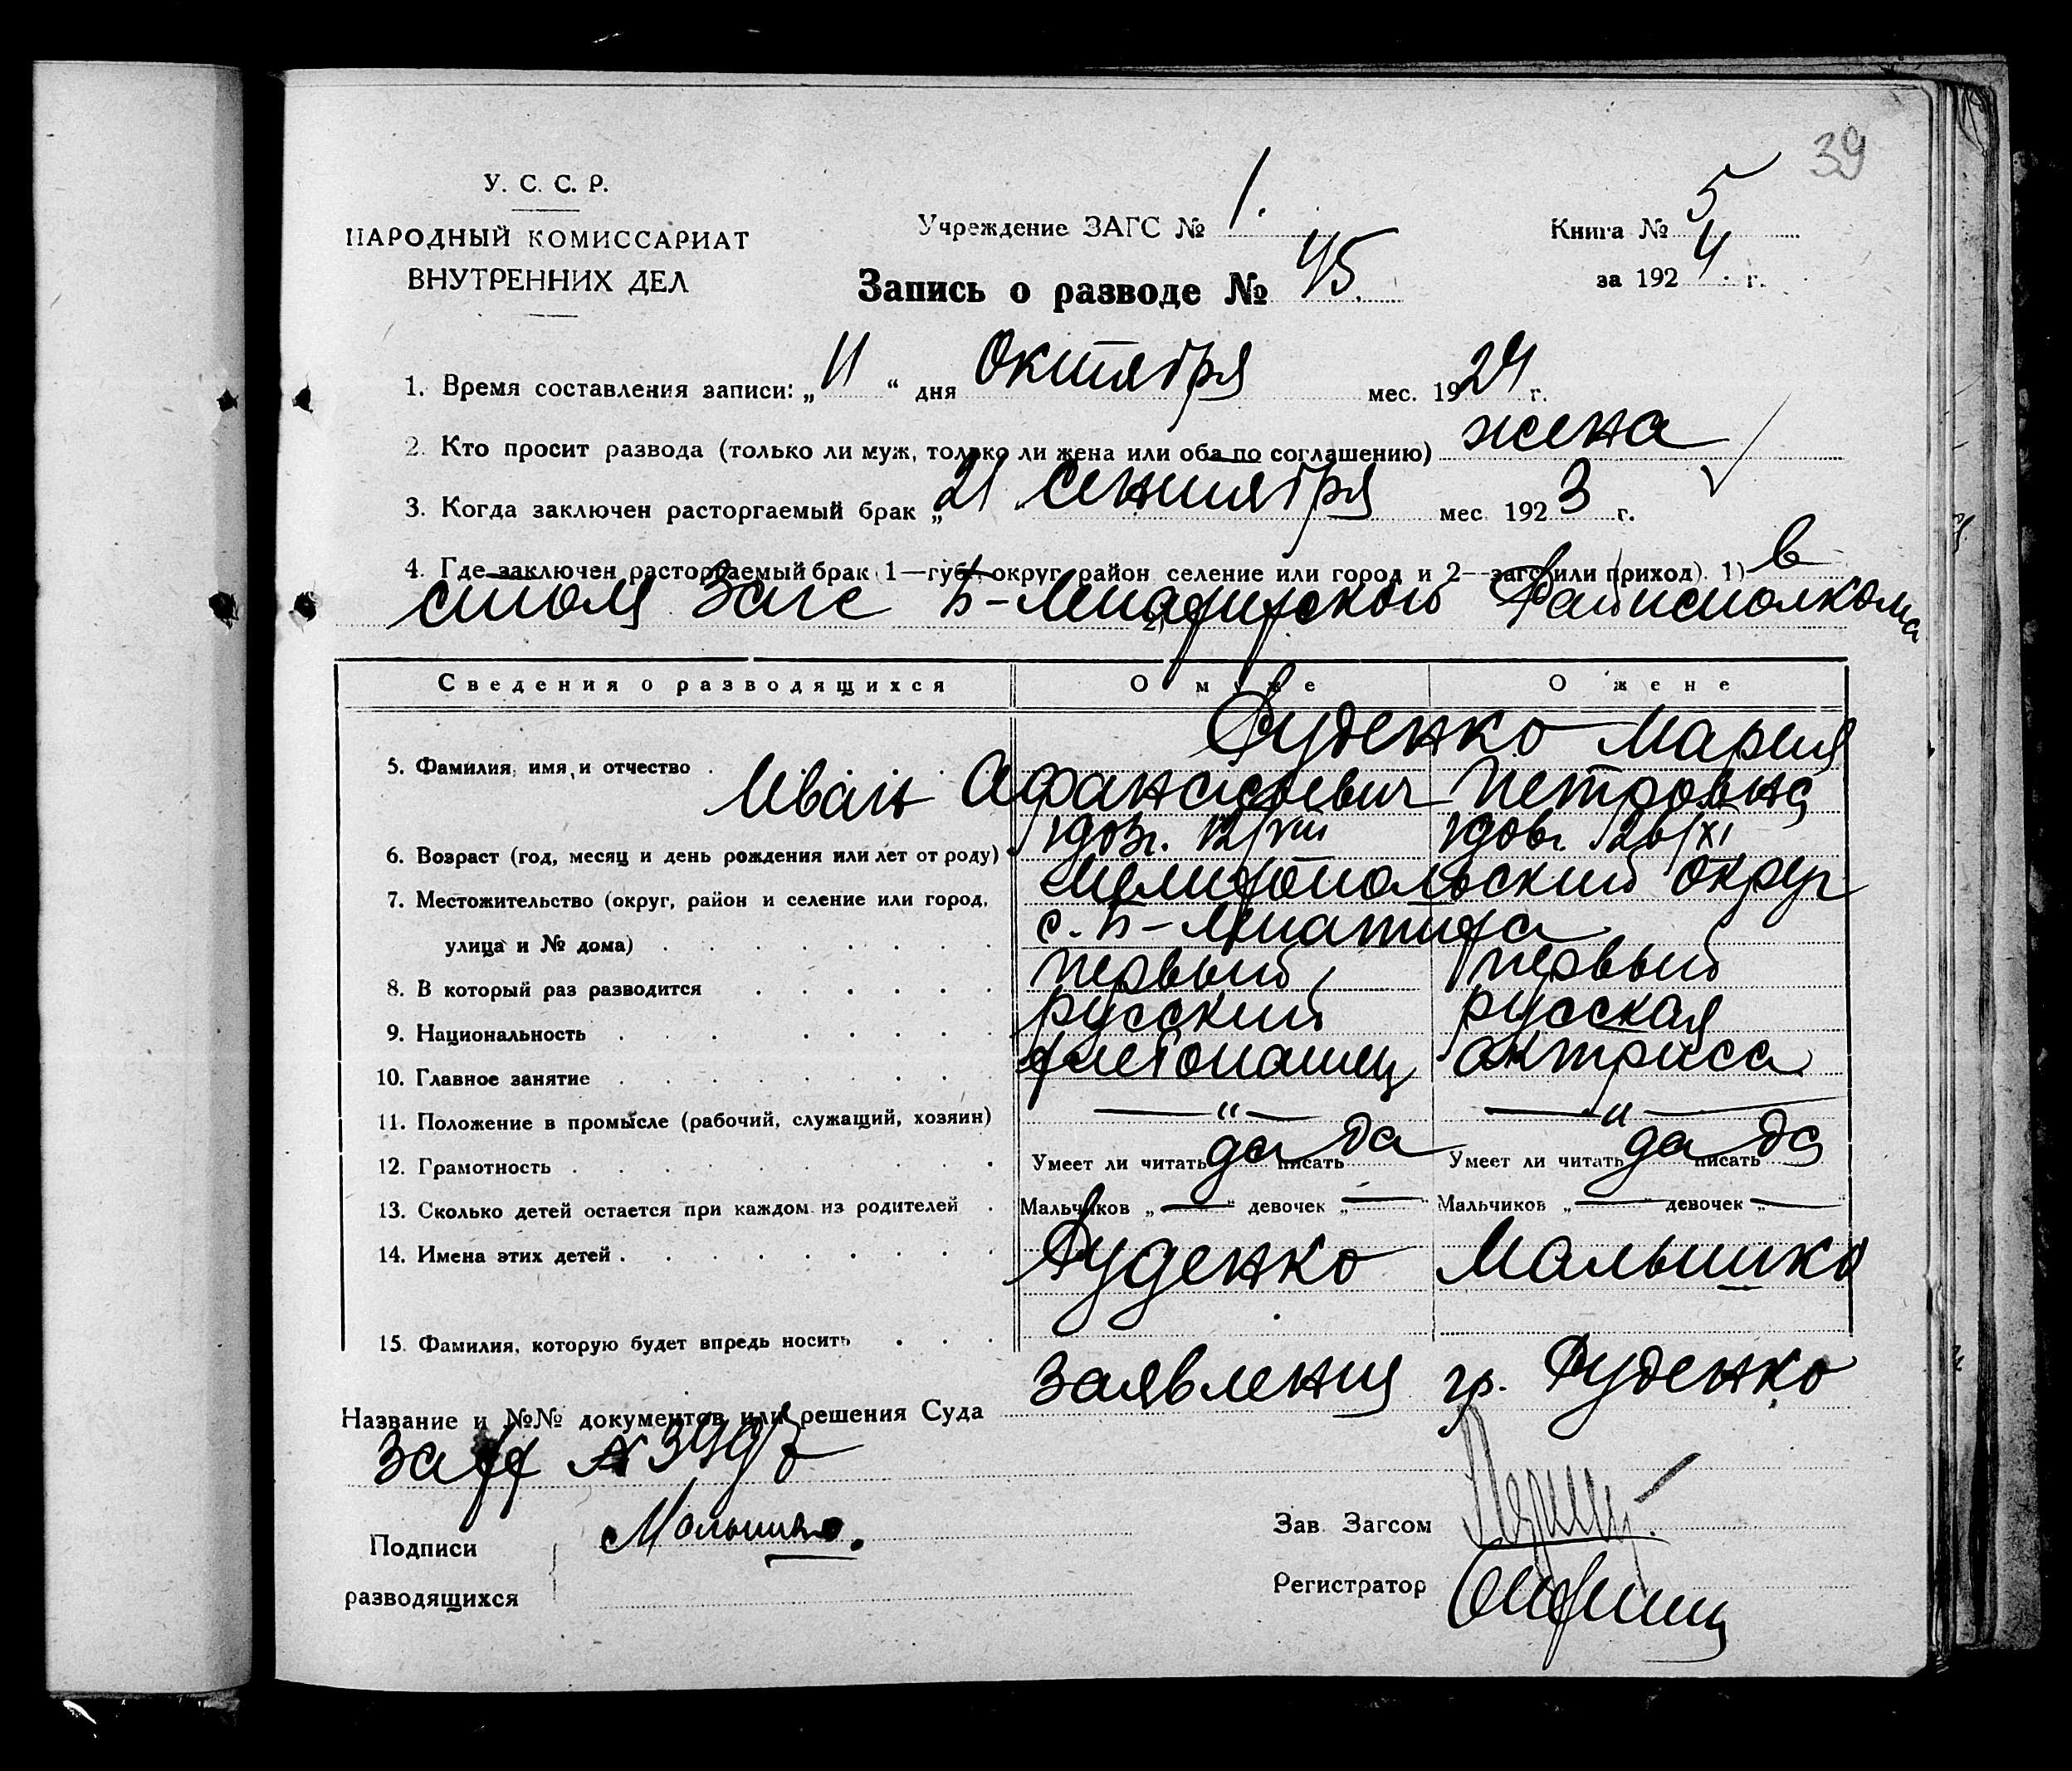 39
У. С. С. Р.
НАРОДНЫЙ КОМИССАРИАТ
ВНУТРЕННИХ ДЕЛ
Учреждение ЗАГС № 1.
Запись о разводе № 45.
Книга № 5
за 1924 г.
1. Время составления записи: „ 11 “ дня Октября мес. 1924 г.
2. Кто просит развода (только ли муж, только ли жена или оба по соглашению) жена
3. Когда заключен расторгаемый брак „ 21 сентября мес. 1923 г.
4. Где заключен расторгаемый брак (1—губ., округ, район селение или город и 2—загс или приход). 1) в
столя Загс Б- Райисполкома
Сведения о разводящихся О муже О жене
Руденко Мария
5. Фамилия, имя, и отчество Иван Афанасьевич Петровна
6. Возраст (год, месяц и день рождения или лет от роду) 1903г. 12/VIII 26/XI
7. Местожительство (округ, район и селение или город, Мелитопольский округ
улица и № дома) с. Б-
8. В который раз разводится первый первый
9. Национальность русский русская
10. Главное занятие актриса
11. Положение в промысле (рабочий, служащий, хозяин) — " — — " —
12. Грамотность Умеет ли читать да писать да Умеет ли читать да писать да
13. Сколько детей остается при каждом из родителей Мальчиков „ — “ девочек „ — “ Мальчиков „ — “ девочек „ —
14. Имена этих детей Руденко Малышко
15. Фамилия, которую будет впредь носить
Название и №№ документов или решения Суда заявления гр. Руденко
Подписи Малышко.
разводящихся
Зав. Загсом
Регистратор